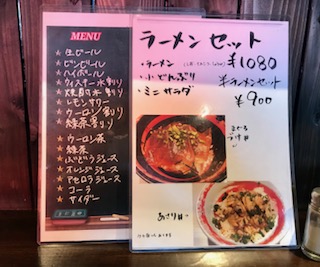 MENU
★ 生ビール
★ ビンビール
★ ハイボール
★ ウィスキー水割り
★ 焼酎水割り
★ レモンサワー
★ ウーロン割り
緑茶割り
★ ウーロン茶
★ 緑茶
★ ぶどうジュース
★ オレンジジュース
★ アセロラジュース
★ コーラ
★ サイダー
ラーメンセット
・ラーメン
¥1080
・小どんぶり
・ミニサラダ
半ラーメンセット
¥900
あさり丼